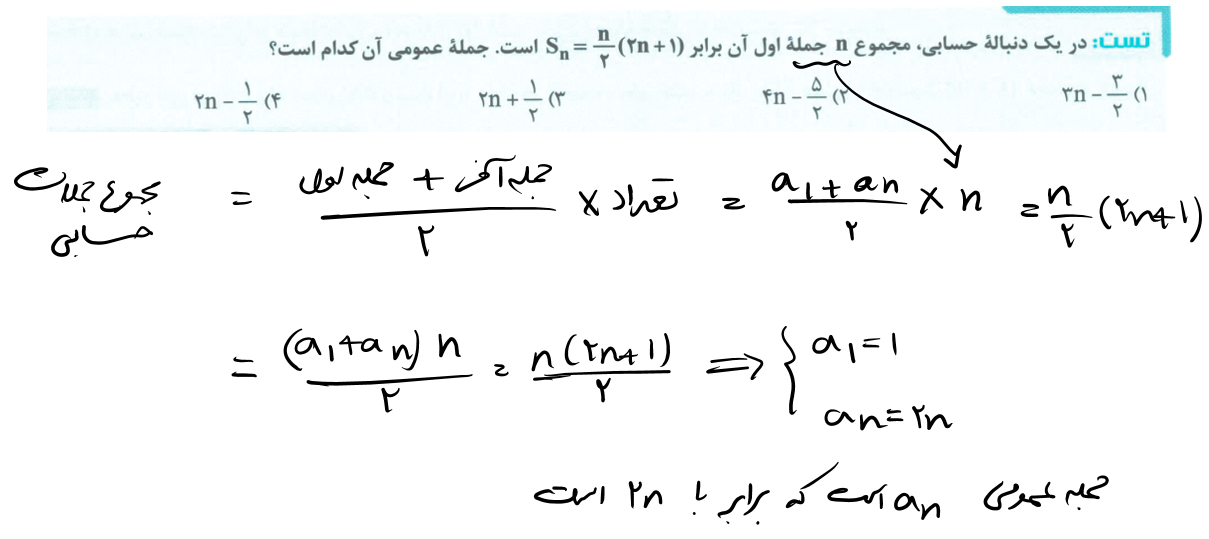 تست: در یک دنبالهٔ حسابی، مجموع n جملهٔ اول آن برابر Sₙ = n/۲ (۲n+۱) است. جملهٔ عمومی آن کدام است؟
۱) ۳n − ۳/۲   ۲) ۴n − ۵/۲   ۳) ۲n + ۱/۲   ۴) ۲n − ۱/۲
مجموع جملات حسابی = (جمله آخر + جمله اول)/۲ × تعداد = (a₁ + aₙ)/۲ × n = n/۲ (۲n+۱)
= (a₁+aₙ) n/۲ = n(۲n+۱)/۲ ⟹ { a₁=۱
aₙ=۲n
جمله عمومی aₙ است که برابر با ۲n است